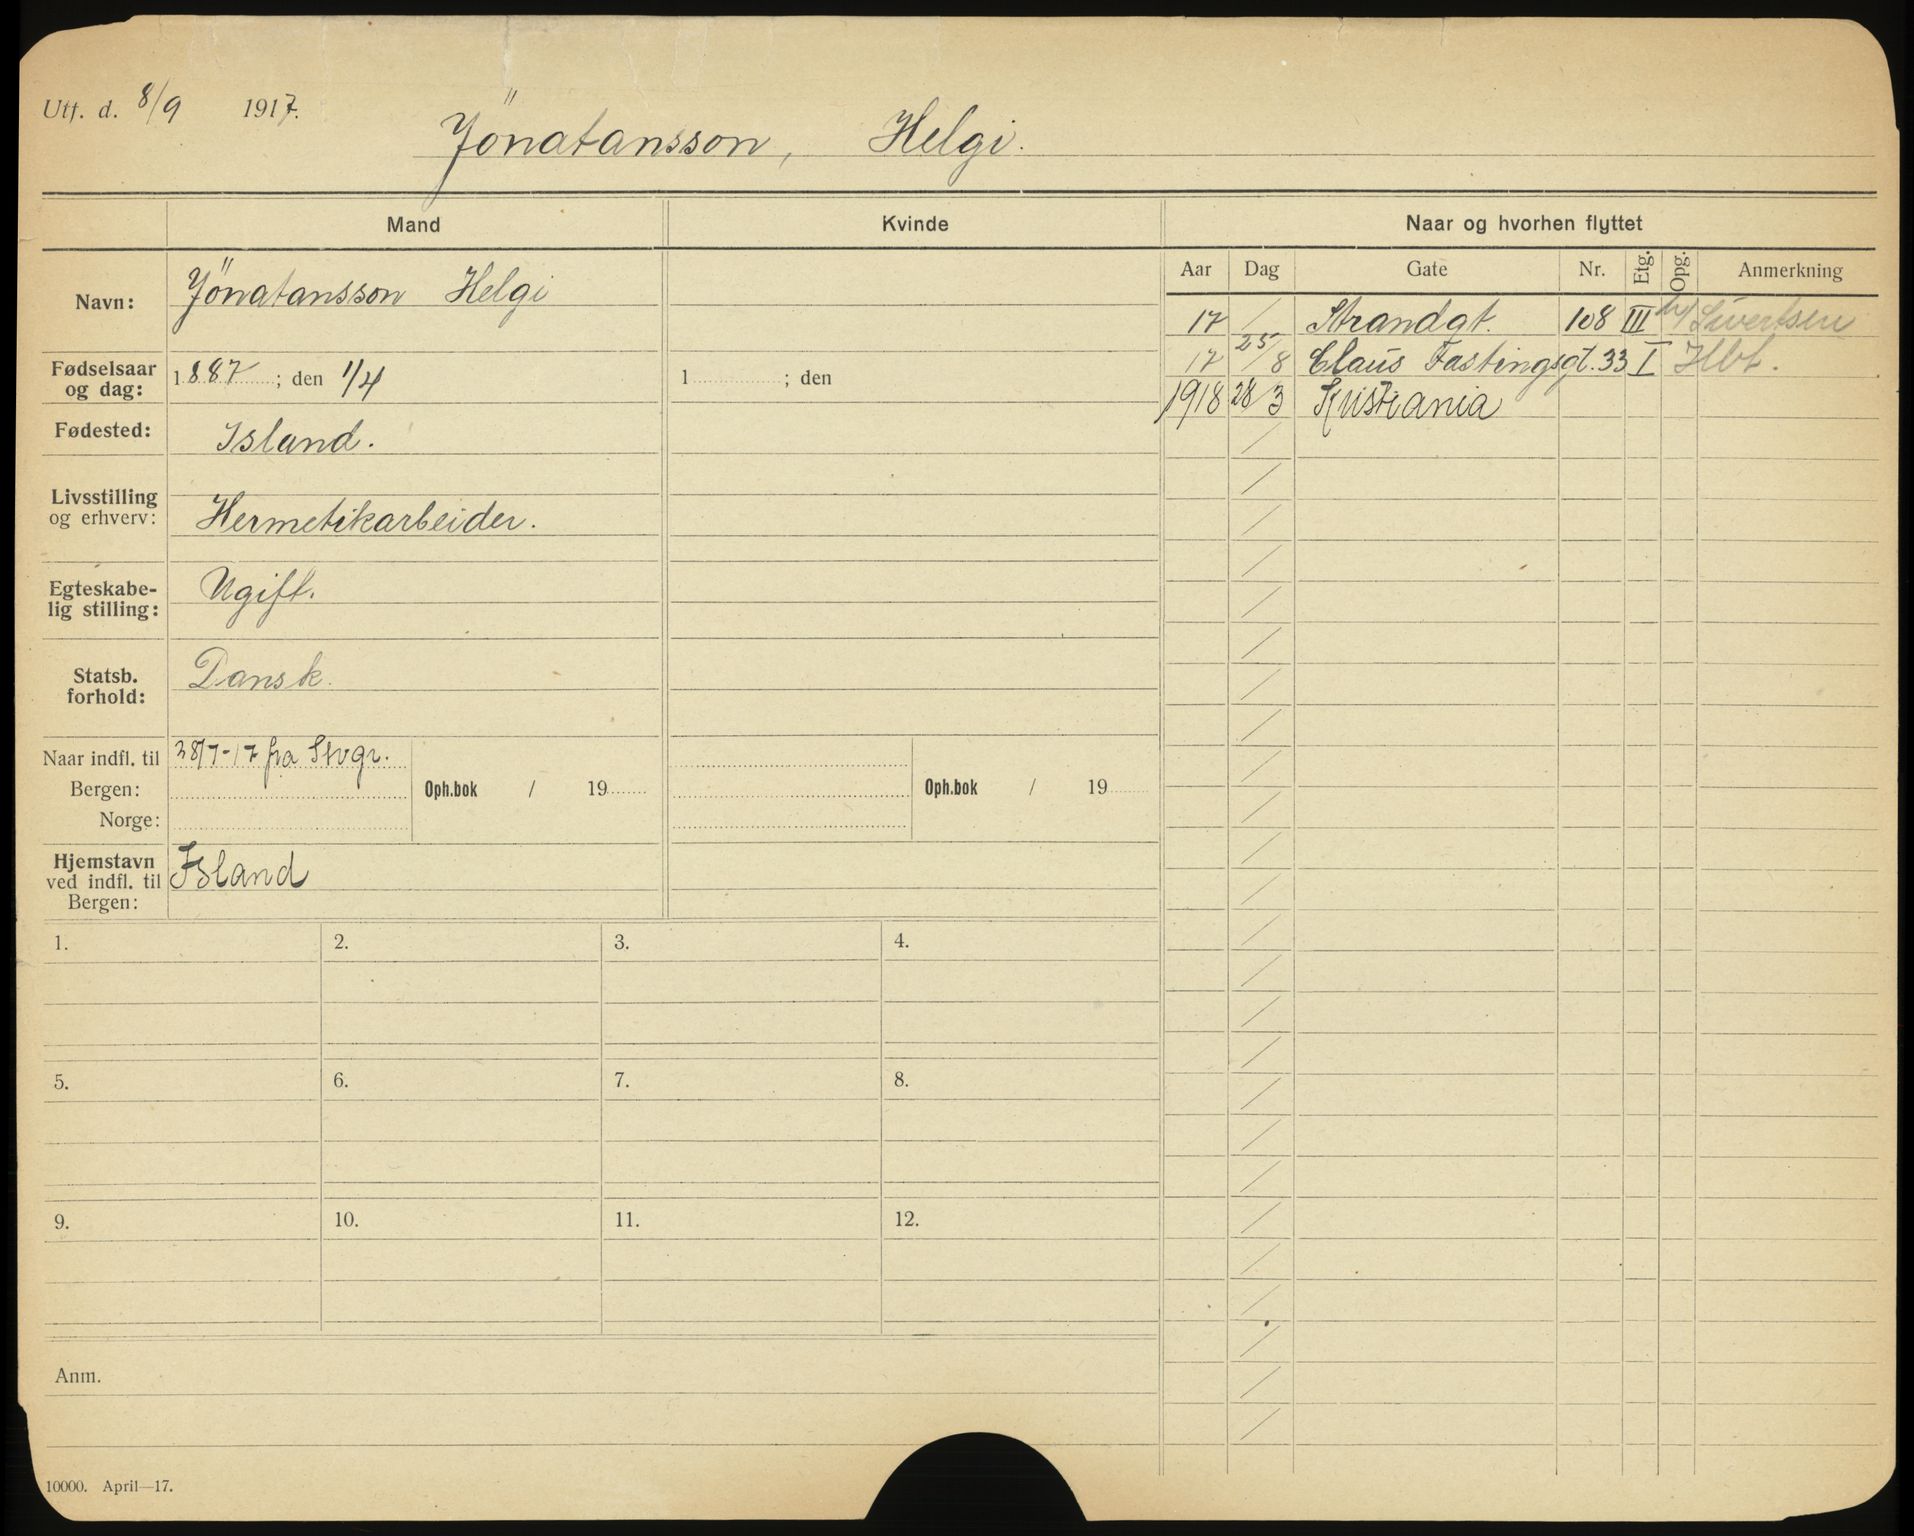 Utf. d. 8/9 1917.
Jönatansson, Helgi.
Mand Kvinde Naar og hvorhen flyttet
Navn: Jönatansson Helgi
Fødselsaar og dag: 1887 ; den 1/4
1 ; den
Fødested: Island.
Livsstilling og erhverv: Hermetikarbeider.
Egteskabe-
lig stilling: Ugift.
Statsb. forhold: Dansk.
Naar indfl. til 28/7-17 fra Stvgr.
Bergen: Oph.bok / 19 Oph.bok / 19
Norge:
Hjemstavn
ved indfl. til Island
Bergen:
Aar Dag Gate Nr. Etg. Opg. Anmerkning
17 / Strandgt. 108 III Sivertsen
17 25/8 Claus Fastingsgt. 33 I
1918 28/3 Kristiania
1. 2. 3. 4.
5. 6. 7. 8.
9. 10. 11. 12.
Anm.
10000. April—17.